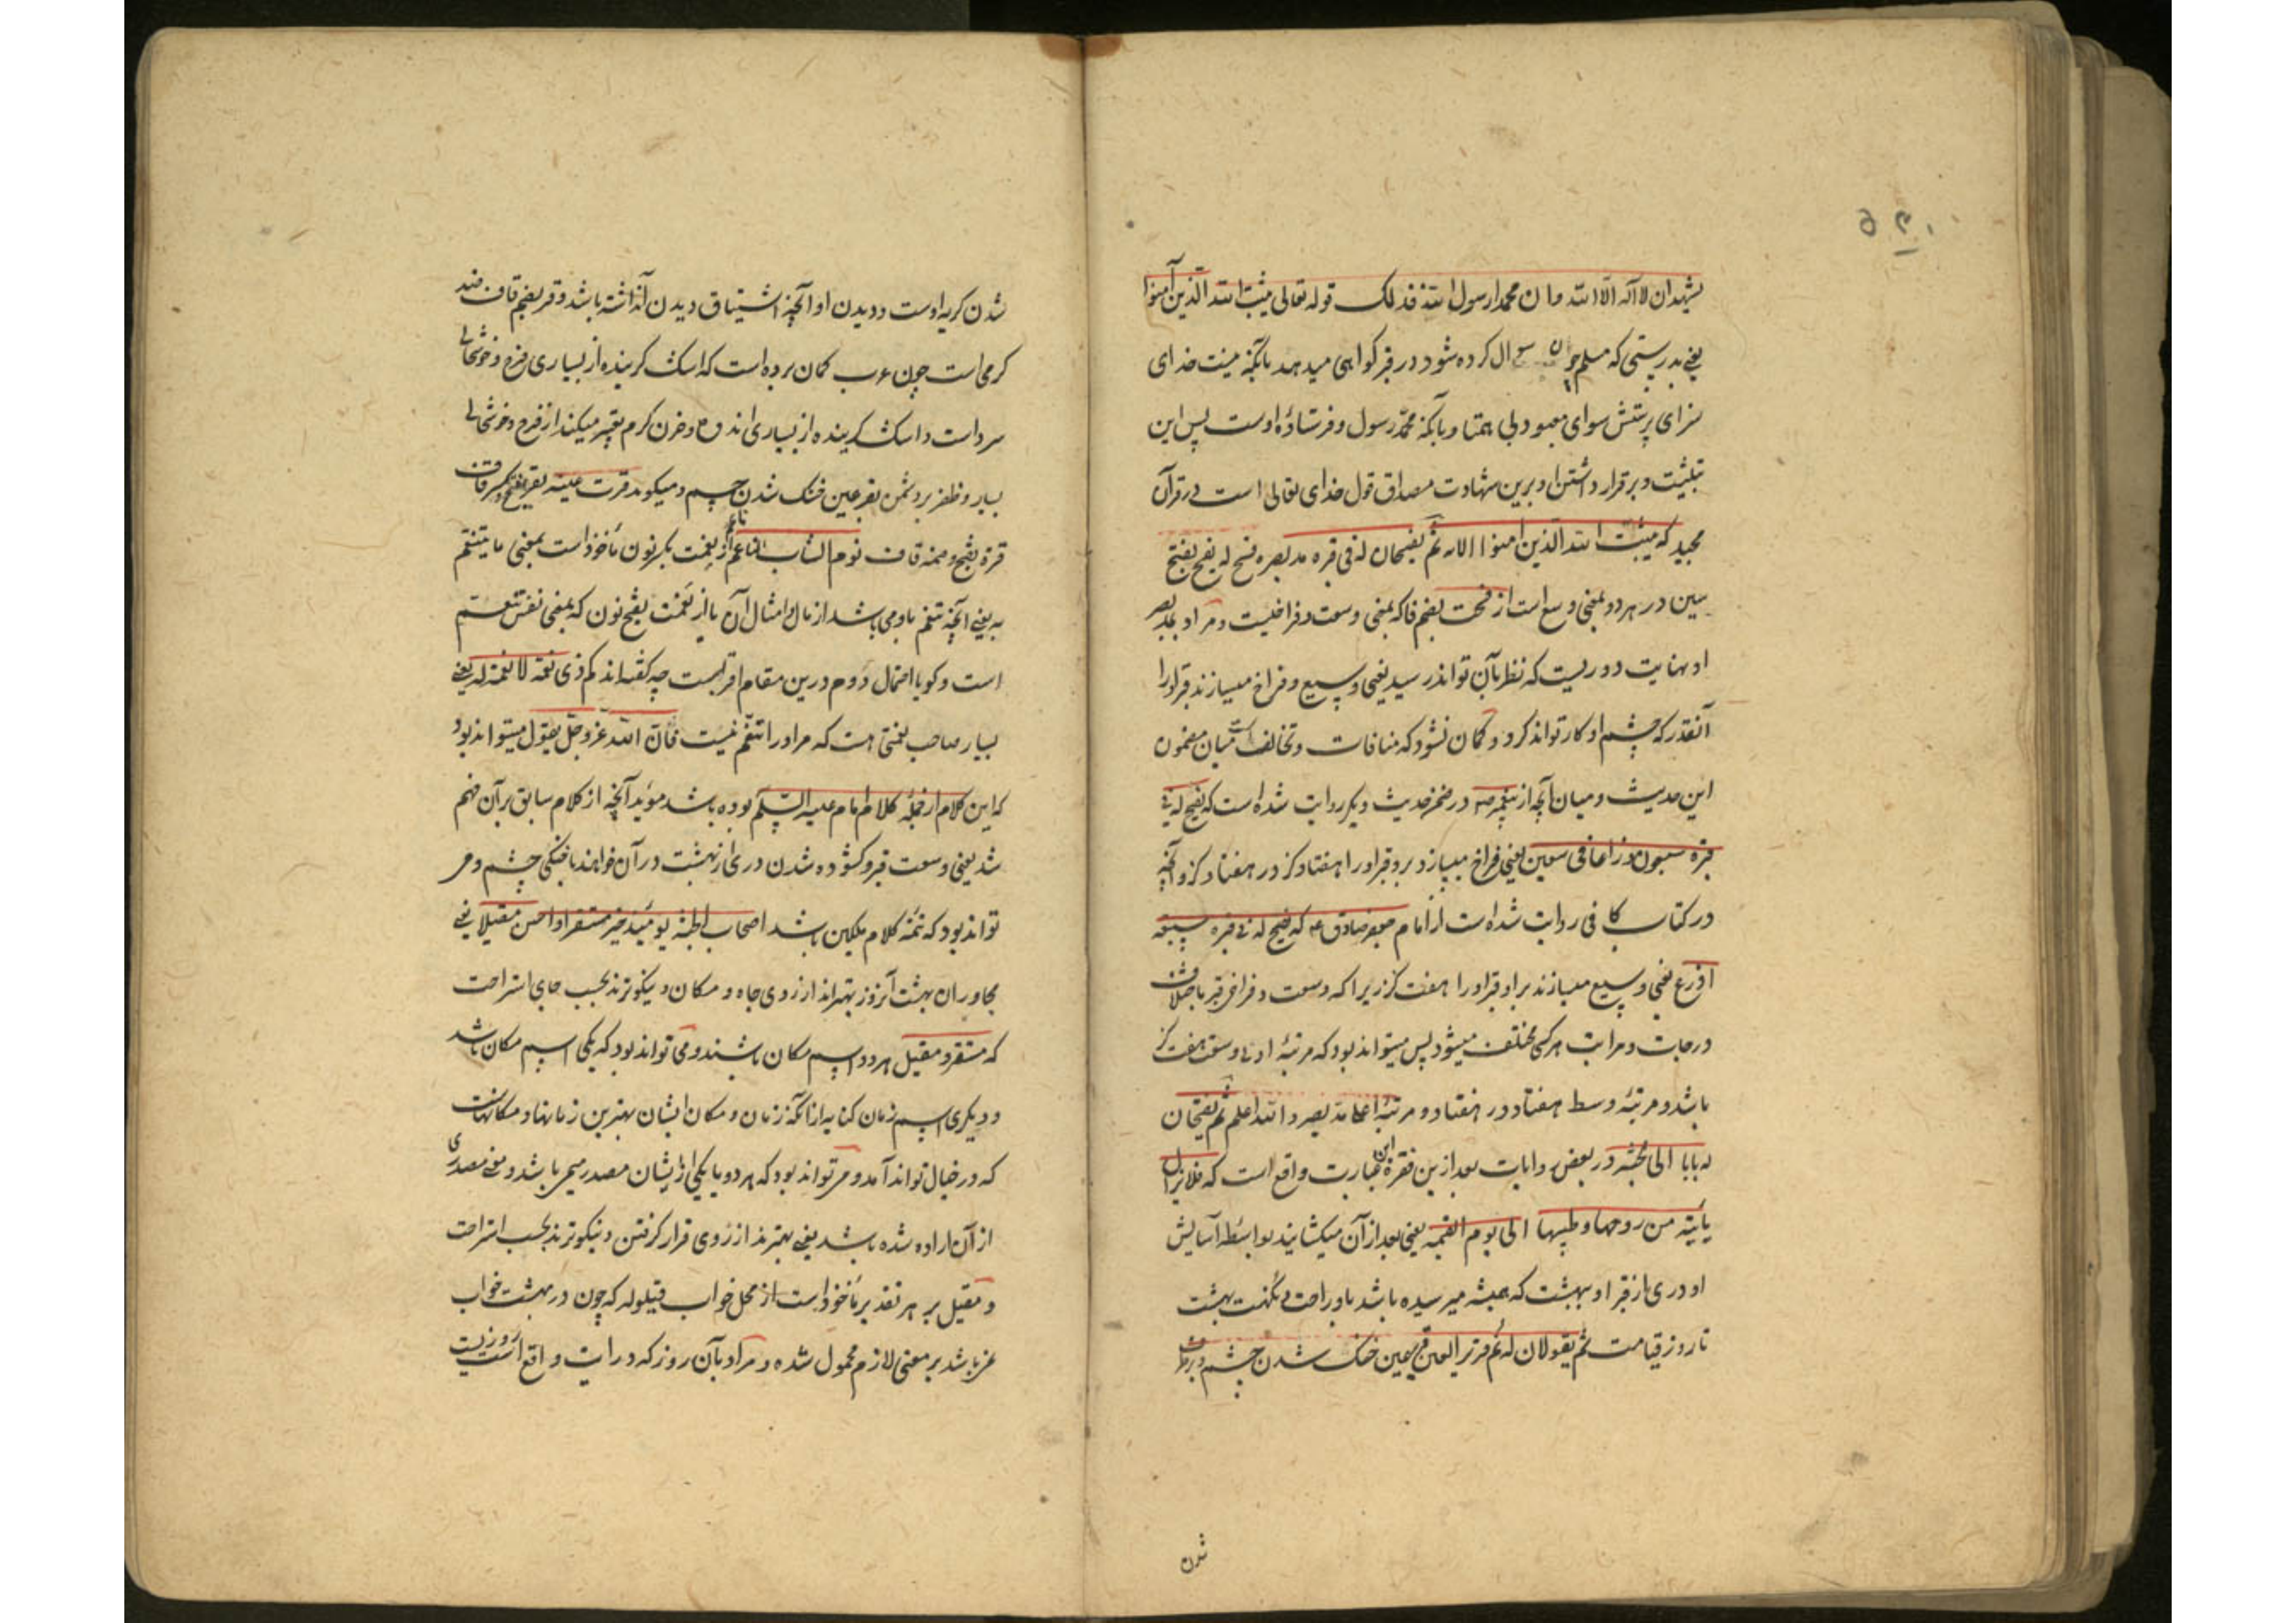 یشهد ان لا اله الا الله و ان محمدا رسول الله فذلک قوله تعالی یثبت الله الذین آمنوا
یعنی بدرستی که مسلم چون سؤال کرده شود در قبر کواهی میدهد بآنکه نیست خدای
سزای پرستش سوای معبود بی همتا و بآنکه محمد رسول و فرستادهٔ اوست پس این
تثبیت و برقرار داشتن او برین شهادت مصداق قول خدای تعالی است در قرآن
مجید که یثبت الله الذین آمنوا الایه ثم یفسحان له فی قبره مد بصره فسح له یفسح بفتح
سین در هر دو بمعنی وسع است از فسحت بضم فا که بمعنی وسعت و فراخیست و مراد بمد بصر
او نهایت دوریست که نظر بآن تواند رسید یعنی وسیع و فراخ میسازند قبر او را
آنقدر که چشم او کار تواند کرد و کمان نشود که منافات و تخالف است میان مضمون
این حدیث و میان آنچه از پیغمبر ص در ضمن حدیث دیکر روایت شده است که یفسح له فی
قبره سبعون ذراعا فی سبعین یعنی فراخ میسازد برو قبر او را هفتاد کز در هفتاد کز و آنچه
در کتاب کافی روایت شده است از امام جعفر صادق ع که یفسح له فی قبره سبعة
اذرع یعنی وسیع میسازند بر او قبر او را هفت کز زیرا که وسعت و فراخی قبر باختلاف
درجات و مراتب هر کسی مختلف میشود پس میتواند بود که مرتبهٔ ادنی وسعت هفت کز
باشد و مرتبهٔ وسط هفتاد در هفتاد و مرتبهٔ اعلا مد بصر و الله اعلم ثم یفتحان
له بابا الی الجنة در بعض روایات بعد ازین فقره این عبارت واقع است که فلا یزال
یأتیه من روحها و طیبها الی یوم القیمه یعنی بعد از آن میکشایند بواسطهٔ آسایش
او دری از قبر او ببهشت که همیشه میرسیده باشد باو راحت و نکهت بهشت
تا روز قیامت ثم یقولان له نم قریر العین قر عین خنک شدن چشم و برطرف
شدن
شدن کریه اوست و دیدن او آنچه اشتیاق دیدن آن داشته باشد و قر بضم قاف ضد
کرمی است چون عرب کمان برده است که اشک کرینده از بسیاری فرح و خوشحالی
سرد است و اشک کرینده از بسیاری اندوه و حزن کرم تعبیر میکنند از فرح و خوشحالی
بسیار و ظفر بر دشمن بقر عین خنک شدن چشم و میکوید قرت عینه تقر بفتح و کسر قاف
قرة بفتح و ضمه قاف نوم الشاب الناعم ناعم از نعمت بکسر نون مأخوذ است بمعنی ما یتنعم
به یعنی آنچه تنعم باو می باشد از مال و امثال آن یا از نعمت بفتح نون که بمعنی نفس تنعم
است و کویا احتمال دوم درین مقام اقربست چه کفته اند کم ذی نعمة لا نعمة له یعنی
بسیار صاحب نعمتی هست که مر او را تنعم نیست فان الله عز و جل یقول میتواند بود
که این کلام از جملهٔ کلام امام علیه السلام بوده باشد مؤید آنچه از کلام سابق بر آن فهم
شد یعنی وسعت قبر و کشوده شدن دری از بهشت در آن خوابند با خنکی چشم و می
تواند بود که تتمهٔ کلام ملکین باشد اصحاب الجنة یومئذ خیر مستقرا و احسن مقیلا یعنی
مجاوران بهشت آنروز بهتراند از روی جاه و مکان و نیکوترند بحسب جای استراحت
که مستقر و مقیل هر دو اسم مکان باشند و می تواند بود که یکی اسم مکان باشد
و دیکری اسم زمان کنایه از آنکه زمان و مکان ایشان بهترین زمانها و مکانهاست
که در خیال تواند آمد و می تواند بود که هر دو یا یکی از ایشان مصدر میمی باشد و معنی مصدری
از آن اراده شده باشد یعنی بهترند از روی قرار کرفتن و نیکوترند بحسب استراحت
و مقیل بر هر تقدیر مأخوذ است از محل خواب قیلوله که چون در بهشت خواب
عز باشد بر معنی لازم محمول شده و مراد بآن روز که در آیت واقع است روزیست